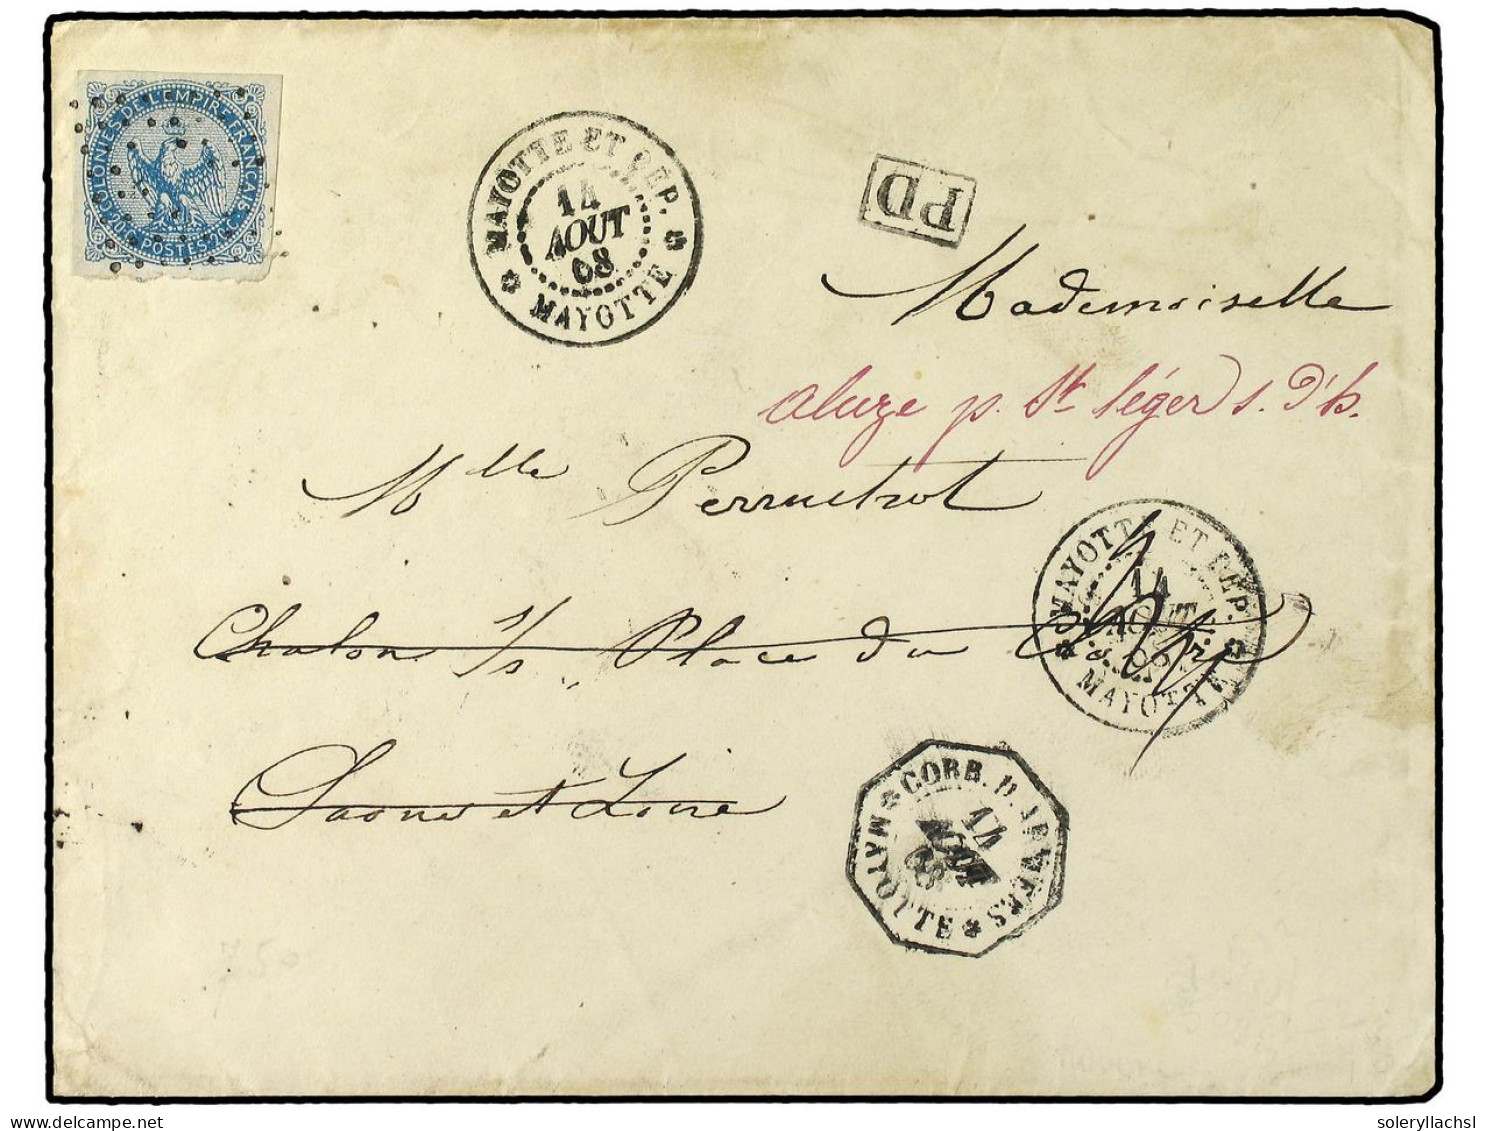 COLONIES DE L'EMPIRE FRANÇAIS
20c POSTES 20c
MAYOTTE ET DÉP.
14
AOUT
68
MAYOTTE
PD
Mademoiselle
Aluze p. St léger s. D'h.
Mlle Perruchot
MAYOTTE ET DÉP.
14
AOUT
68
MAYOTTE
Chalon s/s, Place du
Saone et Loire
CORR. D. ARMÉES
14
AOUT
68
MAYOTTE
soleryllachsl